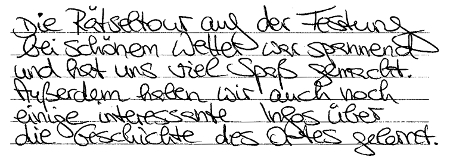 Die Rätseltour auf der Festung
bei schönem Wetter war spannend
und hat uns viel Spaß gemacht.
Außerdem haben wir auch noch
einige interessante Infos über
die Geschichte des Ortes gelernt.